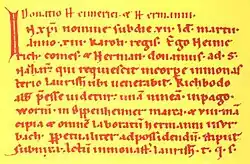 Donatio Heinerici. & Hermanni
In xpi nomine sub die xvi id mart
anno. xiii karoli regis. Ego Heinr
rich comes & Herman. donamus. ad S.
Nazar qui requiescit in corpore in monas
terio laurissh. ubi venerabil. Richbodo
abb. preesse videtur una vineā in pago
worm. in oppenheimer marca. &
opia & omne laboratū hermanni visor
bach. perpetualiter ad possidendū. stipul
subnixa. actū in monast laurissh. t. q. s.